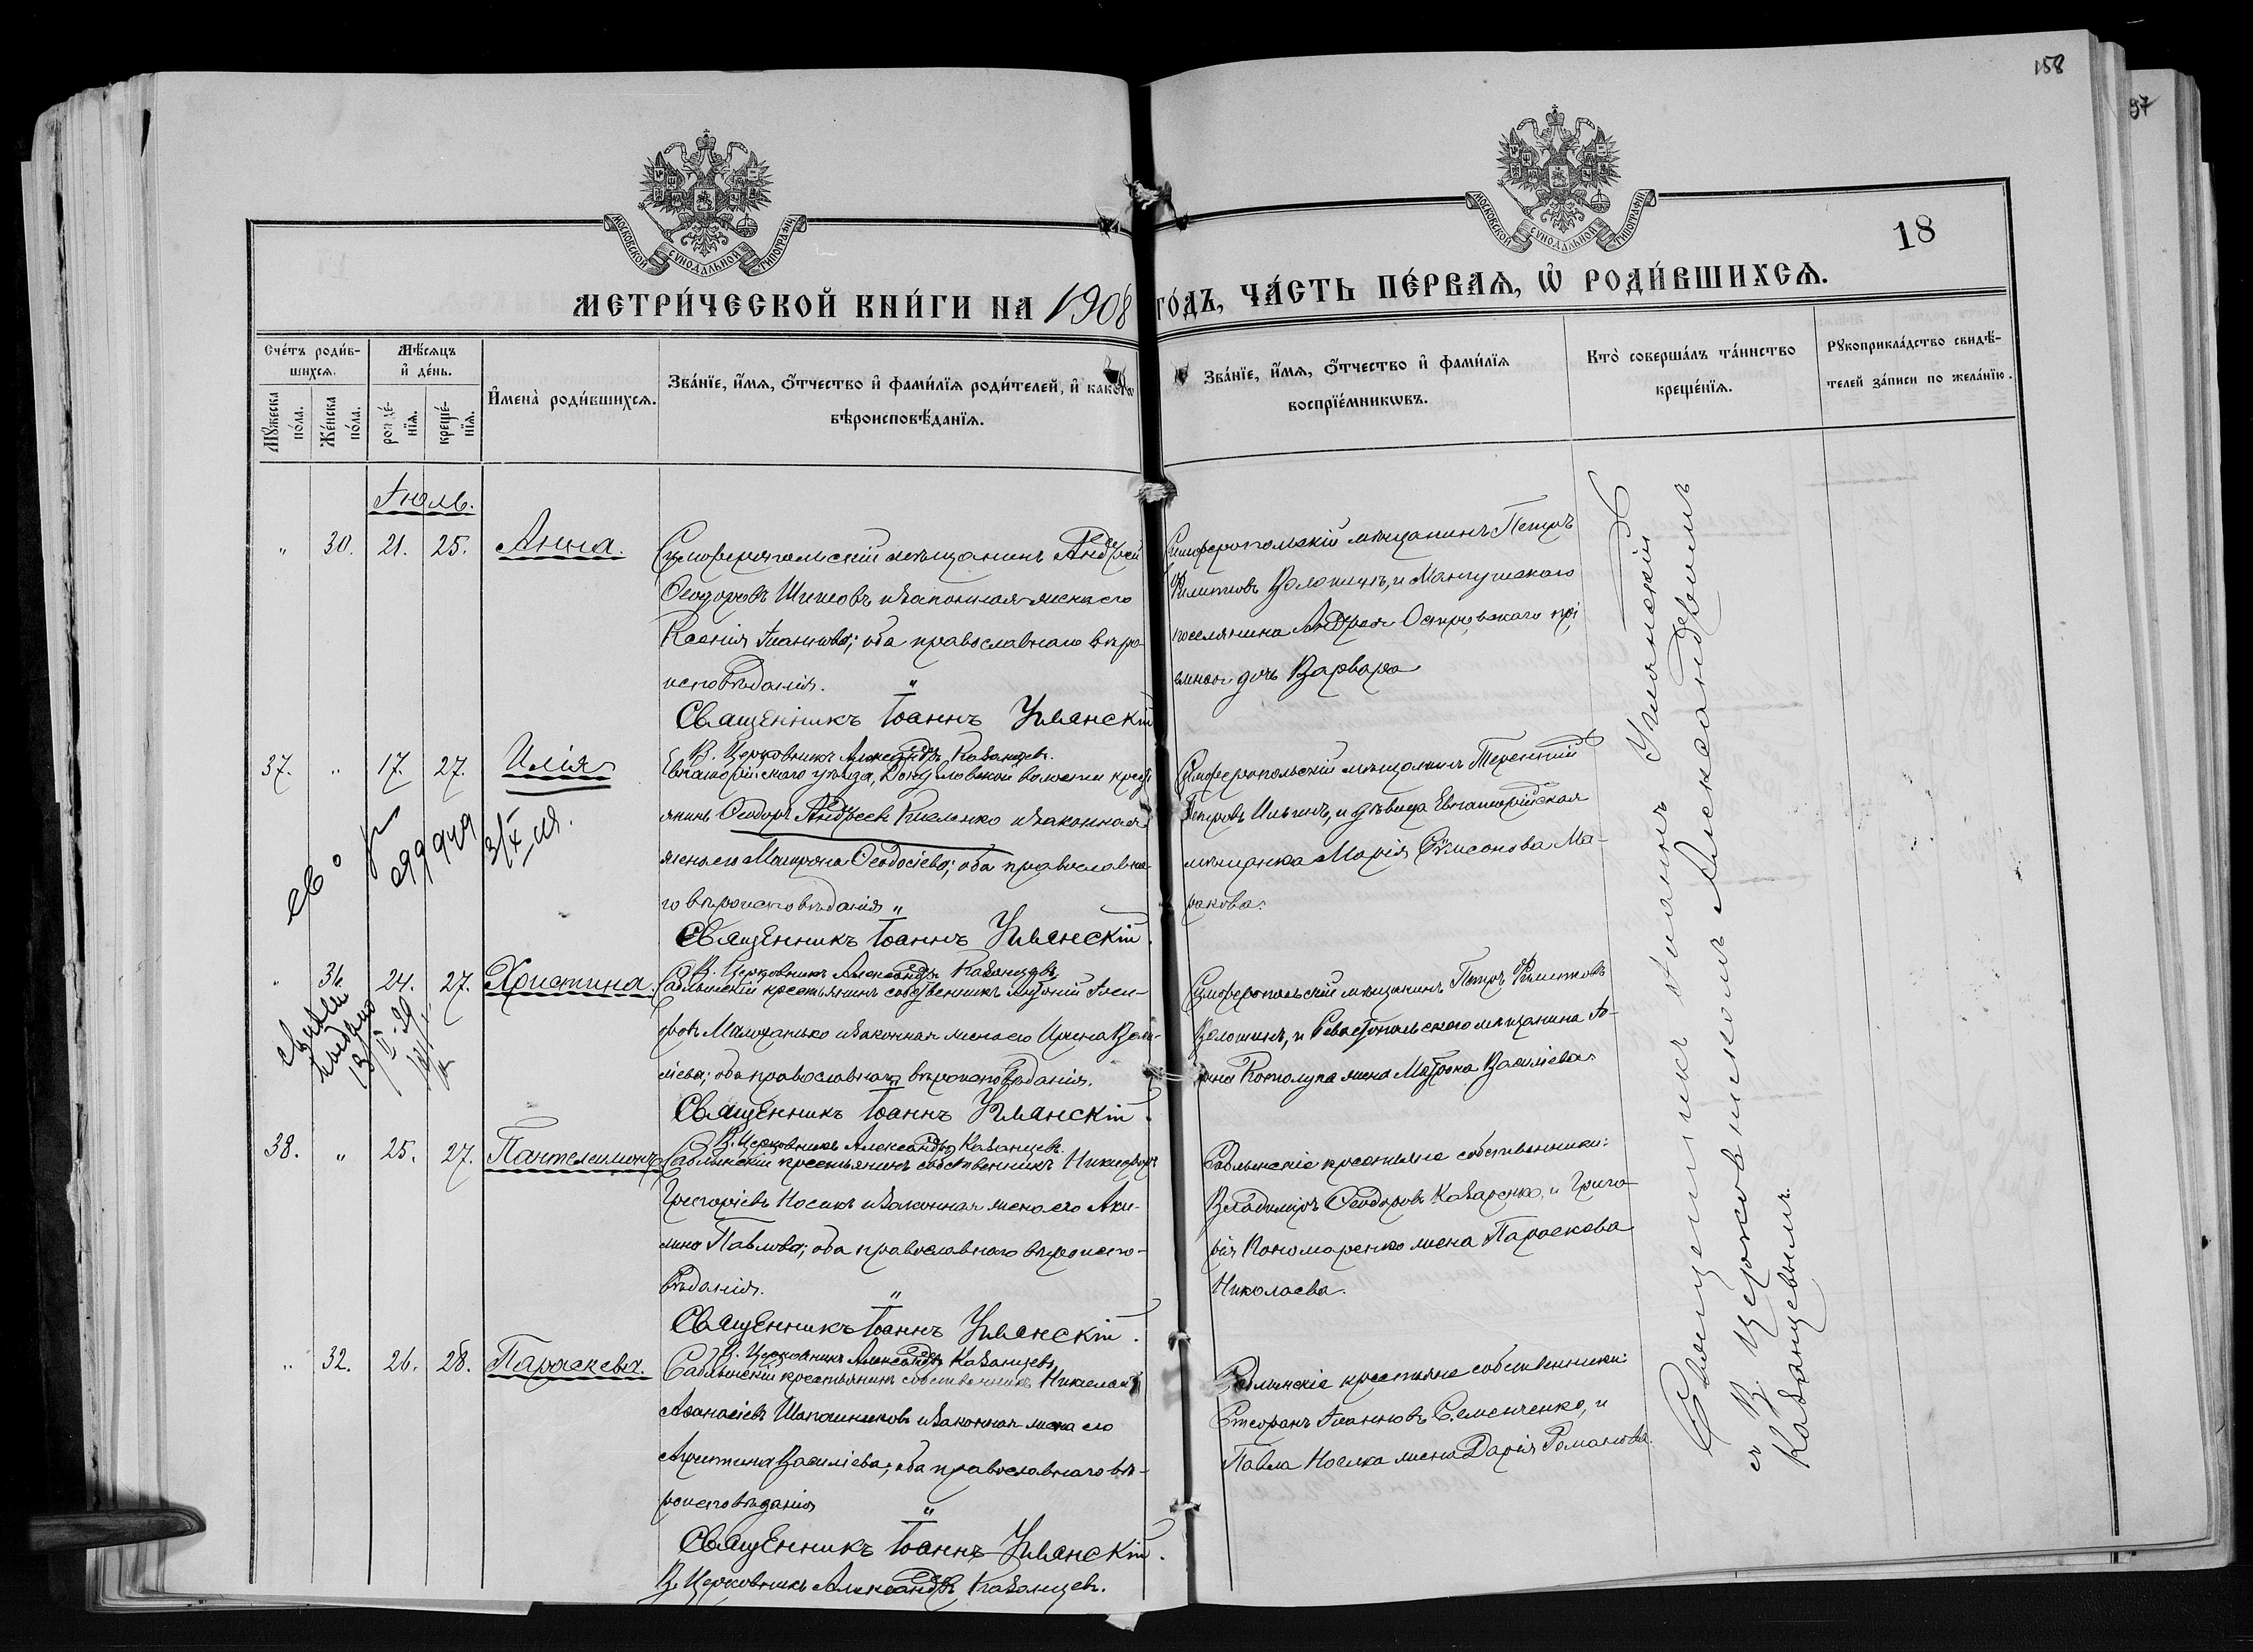 158
97
18
МОСКОВСКОЙ СѴНОДАЛЬНОЙ ТИПОГРАФІИ
МОСКОВСКОЙ СѴНОДАЛЬНОЙ ТИПОГРАФІИ
МЕТРИ́ЧЕСКОЙ КНИ́ГИ НА 1908 ГО́ДЪ, ЧА́СТЬ ПЕ́РВАѦ, Ѡ҆ РОДИ́ВШИХСѦ.
Сче́тъ роди́в-
шихсѧ.
Мѣ́сѧцъ
и҆ де́нь.
Мꙋжеска по́ла.
Же́нска по́ла.
рожде́-
нїѧ.
креще́-
нїѧ.
И҆мена̀ роди́вшихсѧ.
Зва́нїе, и҆́мѧ, ѻ҆́тчество и҆ фами́лїѧ роди́телей, и҆ како́гѡ
вѣроисповѣ́данїѧ.
Зва́нїе, и҆́мѧ, ѻ҆́тчество и҆ фами́лїѧ
воспрїе́мникѡвъ.
Кто̀ соверша́лъ та́инство
креще́нїѧ.
Рꙋкоприкла́дство свидѣ́-
телей за́писи по жела́нїю.
Іюль.
" 30. 21. 25. Анна.
Симферопольскій мѣщанинъ Андрей
Ѳеодоровъ Шишовъ и законная жена его
Ксенія Іоаннова; оба православнаго вѣро-
исповѣданія. "
Священникъ Іоаннъ Уманскій
В. Церковникъ Александръ Казанцевъ.
Симферопольскій мѣщанинъ Петръ
Филиповъ Волошинъ, и Мангушскаго
поселянина Андрея Островскаго прі
емная дочь Варвара
37. " 17. 27. Илія
Евпаторійскаго уѣзда, волости крест
янинъ Ѳеодоръ Андреевъ Кисленко и законная
жена его Матрона Ѳеодосіева; оба православна-
го вѣроисповѣданія "
Священникъ Іоаннъ Уманскій.
В. Церковникъ Александръ Казанцевъ
Симферопольскій мѣщанинъ Терентій
Петровъ Ильинъ, и дѣвица Евпаторійская
мѣщанка Марія Сѵмсонова Ма-
ракова.
" 31. 24. 27. Христина.
Саблынскій крестьянинъ собственникъ Іоси-
фовъ и законная жена его Ирина Васи-
ліева; оба православнаго вѣроисповѣданія.
Священникъ Іоаннъ Уманскій.
В. Церковникъ Александръ Казанцевъ.
Симферопольскій мѣщанинъ Петръ Филиповъ
Волошинъ, и Севастопольскаго мѣщанина
жена Матрона Василіева
38. " 25. 27. Пантелеимонъ
Саблынскій крестьянинъ собственникъ Никифоръ
Григоріевъ Носикъ и законная жена его Аки-
лина Павлова; оба православнаго вѣроиспо-
вѣданія. "
Священникъ Іоаннъ Уманскій.
В. Церковникъ Александръ Казанцевъ
Саблынскіе крестьяне собственники:
Владиміръ Ѳеодоровъ Казаренко, и Григо-
рія Пономаренко жена Параскева
Николаева.
" 32. 26. 28. Параскева.
Саблынскій крестьянинъ собственникъ Николай
Аѳанасіевъ Шапошниковъ и законная жена его
Василіева; оба православнаго вѣ-
роисповѣданія "
Священникъ Іоаннъ Уманскій.
В. Церковникъ Александръ Казанцевъ.
Саблынскіе крестьяне собственники:
Стефанъ Іоанновъ Семенченко, и
Павла Носика жена Дарія Романова.
Священникъ Іоаннъ Уманскій
съ В. Церковникомъ Александромъ
Казанцевымъ.